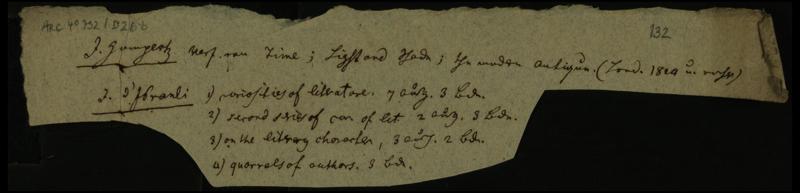 ARC 4° 792 / D26-6
132
J. Gumpertz Verf. von Time; Light and Shade; the modern antique. (Lond. 1824 u. vorh)
I. D'Israeli 1) curiosities of literature. 7 Aufl. 3 Bde.
2) second series of cur of lit 2 aufl. 3 Bde.
3) on the literary character, 3 aufl. 2 Bde.
4) quarrels of authors. 3 Bde.